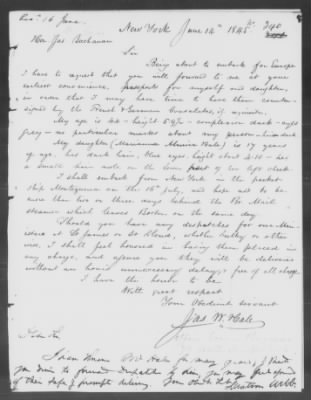 Recd 16 June
New York June 14th 1845. 240
Hon Jas Buchanan
Sir
Being about to embark for Europe
I have to request that you will forward to me at your
earliest convenience, passports for myself and daughter,
in order that I may have time to have them counter-
signed by the French & German Consulates, if requisite.
My age is 44 - height 5 ft - complexion dark - eyes
grey - no particular marks about my person - dark
My daughter (Marianna Maria Hale) is 17 years
of age, has dark hair, blue eyes, height about 4.10 - has a
small hair mole on the lower part of her left cheek.
I shall embark from New York in the packet
Ship Montezuma on the 16th July, and hope not to be
more than two or three days behind the Br Mail
steamer which leaves Boston on the same day
Should you have any despatches for our Min-
isters at St James or St Cloud, whether bulky or other
wise, I shall feel honored in having them placed in
my charge, and assure you they will be delivered
without an hours unnecessary delay, & free of all charge
I have the honor to be
With great respect
Your Obedient servant
Jas W. Hale
Dear Sir
I have known Mr Hale for many years, & should
you desire to forward despatches by him, you may feel assured
of their safe & prompt delivery. Your Obdt Svt
Watson Webb.